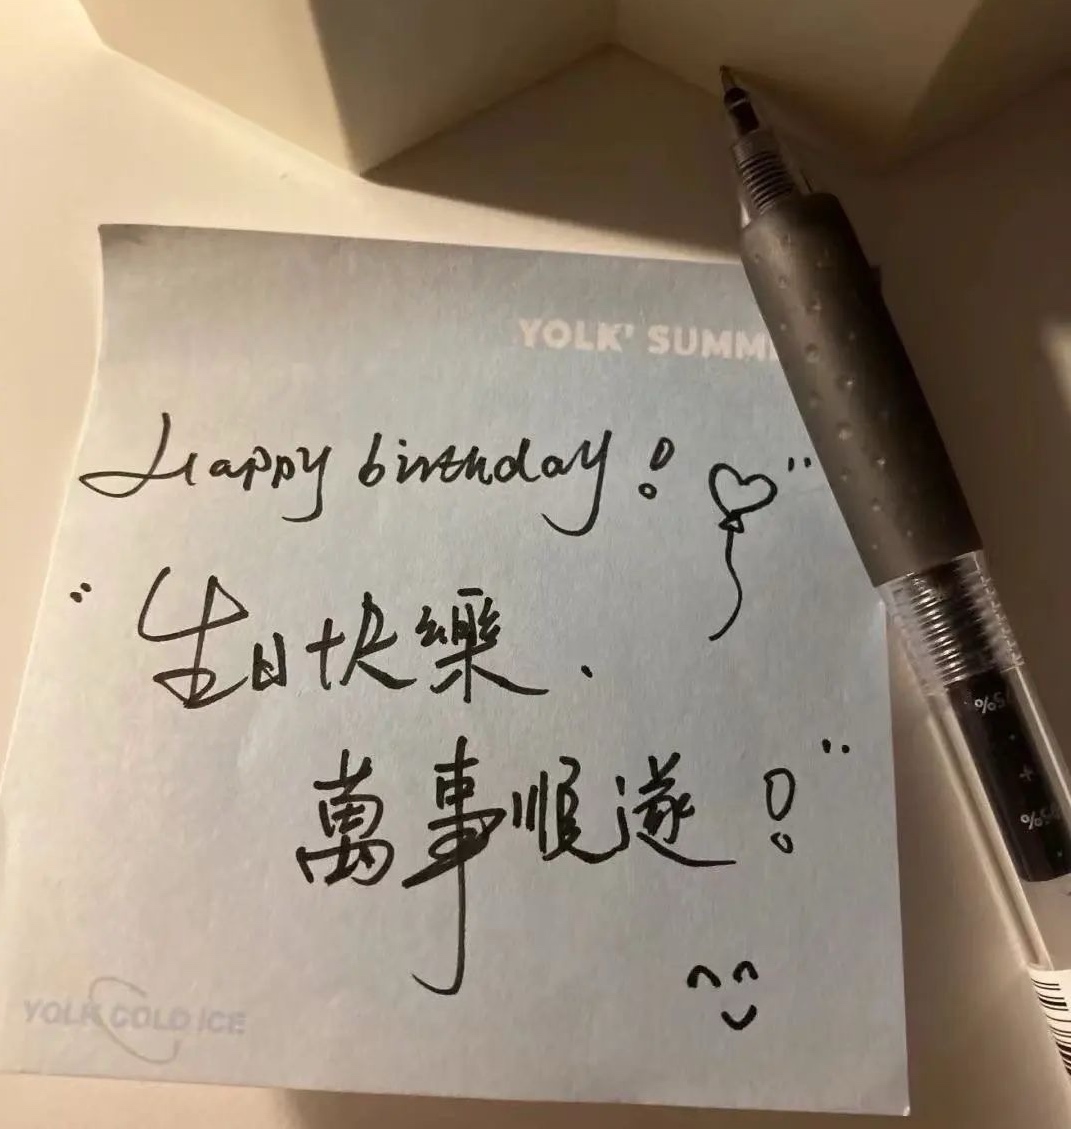 YOLK' SUMM
Happy birthday!
生日快樂.
萬事順遂!
YOLK COLD ICE
5%